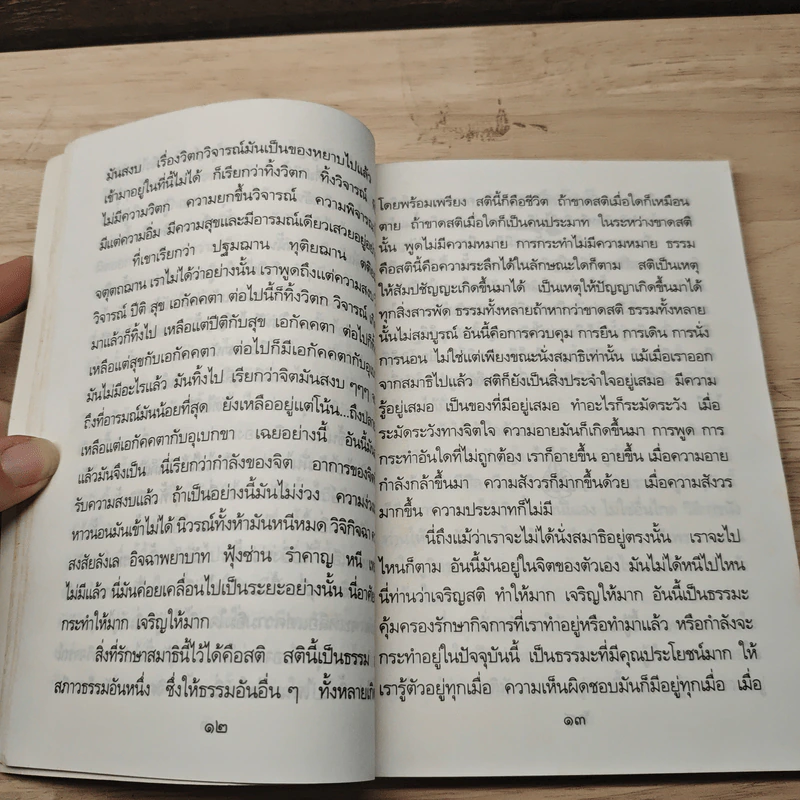 มันสงบ เรื่องวิตกวิจารณ์มันเป็นของหยาบไปแล้ว
เข้ามาอยู่ในที่นี้ไม่ได้ ก็เรียกว่าทิ้งวิตก ทิ้งวิจารณ์
ไม่มีความวิตก ความยกขึ้นวิจารณ์ ความพิจารณ
มีแต่ความอิ่ม มีความสุขและมีอารมณ์เดียวเสวยอยู่
ที่เขาเรียกว่า ปฐมฌาน ทุติยฌาน
จตุตถฌาน เราไม่ได้ว่าอย่างนั้น เราพูดถึงแต่ความสงบ
วิจารณ์ ปีติ สุข เอกัคคตา ต่อไปนี้ก็ทิ้งวิตก วิจารณ์
มาแล้วก็ทิ้งไป เหลือแต่ปีติกับสุข เอกัคคตา ต่อไป
เหลือแต่สุขกับเอกัคคตา ต่อไปก็มีเอกัคคตากับ
มันไม่มีอะไรแล้ว มันทิ้งไป เรียกว่าจิตมันสงบ ๆๆๆ
ถึงที่อารมณ์มันน้อยที่สุด ยังเหลืออยู่แต่โน้น...ถึง
เหลือแต่เอกัคคตากับอุเบกขา เฉยอย่างนี้ อันนี้
แล้วมันจึงเป็น นี่เรียกว่ากำลังของจิต อาการของจิต
รับความสงบแล้ว ถ้าเป็นอย่างนี้มันไม่ง่วง ความง่วง
หาวนอนมันเข้าไม่ได้ นิวรณ์ทั้งห้ามันหนีหมด วิจิกิจฉา
สงสัยลังเล อิจฉาพยาบาท ฟุ้งซ่าน รำคาญ หนี
ไม่มีแล้ว นี่มันค่อยเคลื่อนไปเป็นระยะอย่างนั้น นี่อาศัย
กระทำให้มาก เจริญให้มาก
สิ่งที่รักษาสมาธินี้ไว้ได้คือสติ สตินี้เป็นธรรม
สภาวธรรมอันหนึ่ง ซึ่งให้ธรรมอันอื่น ๆ ทั้งหลาย
๑๒
โดยพร้อมเพรียง สตินี้ก็คือชีวิต ถ้าขาดสติเมื่อใดก็เหมือน
ตาย ถ้าขาดสติเมื่อใดก็เป็นคนประมาท ในระหว่างขาดสติ
นั้น พูดไม่มีความหมาย การกระทำไม่มีความหมาย ธรรม
คือสตินี้คือความระลึกได้ในลักษณะใดก็ตาม สติเป็นเหตุ
ให้สัมปชัญญะเกิดขึ้นมาได้ เป็นเหตุให้ปัญญาเกิดขึ้นมาได้
ทุกสิ่งสารพัด ธรรมทั้งหลายถ้าหากว่าขาดสติ ธรรมทั้งหลาย
นั้นไม่สมบูรณ์ อันนี้คือการควบคุม การยืน การเดิน การนั่ง
การนอน ไม่ใช่แต่เพียงขณะนั่งสมาธิเท่านั้น แม้เมื่อเราออก
จากสมาธิไปแล้ว สติก็ยังเป็นสิ่งประจำใจอยู่เสมอ มีความ
รู้อยู่เสมอ เป็นของที่มีอยู่เสมอ ทำอะไรก็ระมัดระวัง เมื่อ
ระมัดระวังทางจิตใจ ความอายมันก็เกิดขึ้นมา การพูด การ
กระทำอันใดที่ไม่ถูกต้อง เราก็อายขึ้น อายขึ้น เมื่อความอาย
กำลังกล้าขึ้นมา ความสังวรก็มากขึ้นด้วย เมื่อความสังวร
มากขึ้น ความประมาทก็ไม่มี
นี่ถึงแม้ว่าเราจะไม่ได้นั่งสมาธิอยู่ตรงนั้น เราจะไป
ไหนก็ตาม อันนี้มันอยู่ในจิตของตัวเอง มันไม่ได้หนีไปไหน
นี่ท่านว่าเจริญสติ ทำให้มาก เจริญให้มาก อันนี้เป็นธรรมะ
คุ้มครองรักษากิจการที่เราทำอยู่หรือทำมาแล้ว หรือกำลังจะ
กระทำอยู่ในปัจจุบันนี้ เป็นธรรมะที่มีคุณประโยชน์มาก ให้
เรารู้ตัวอยู่ทุกเมื่อ ความเห็นผิดชอบมันก็มีอยู่ทุกเมื่อ เมื่อ
๑๓